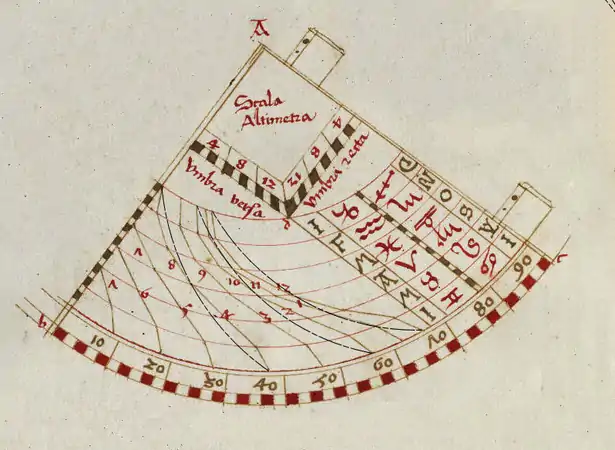 A
Scala
Altimetra
4 8 12
12 8 4
Umbra versa
Umbra recta
d
D N O S A I
♐ ♏ ♎ ♍ ♌ ♋
♑ ♒ ♓ ♈ ♉ ♊
I F M A M I
8 9 10 11 12
6 5 4 3 2 1
b
c
10 20 30 40 50 60 70 80 90